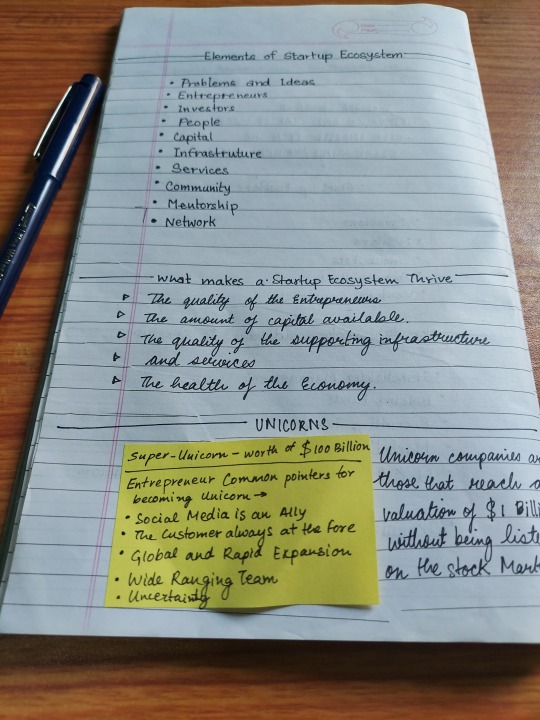 Elements of Startup Ecosystem
• Problems and Ideas
• Entrepreneurs
• Investors
• People
• Capital
• Infrastruture
• Services
• Community
• Mentorship
• Network
What makes a Startup Ecosystem Thrive
▷ The quality of the Entrepreneurs
▷ The amount of capital available.
▷ The quality of the supporting infrastructure
▷ and services
▷ The health of the Economy.
UNICORNS
Super-Unicorn - worth of $100 Billion
Entrepreneur Common pointers for
becoming Unicorn →
• Social Media is an Ally
• The Customer always at the fore
• Global and Rapid Expansion
• Wide Ranging Team
• Uncertainty
Unicorn companies a
those that reach a
valuation of $1 Billi
without being liste
on the stock Mark